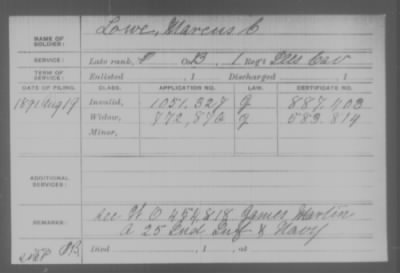 NAME OF SOLDIER: Lowe, Marcus C
SERVICE: Late rank, P Co. B, 1 Reg't Ills Cav
TERM OF SERVICE: Enlisted , 1 Discharged , 1
DATE OF FILING. CLASS. APPLICATION NO. LAW. CERTIFICATE NO.
1891 Aug 19 Invalid, 1051.327 G 887,703
Widow, 772,876 G 583.814
Minor,
ADDITIONAL SERVICES:
REMARKS: see W O 454,818 James Martin
A 25 Ind Inf & Navy
Died , 1 , at